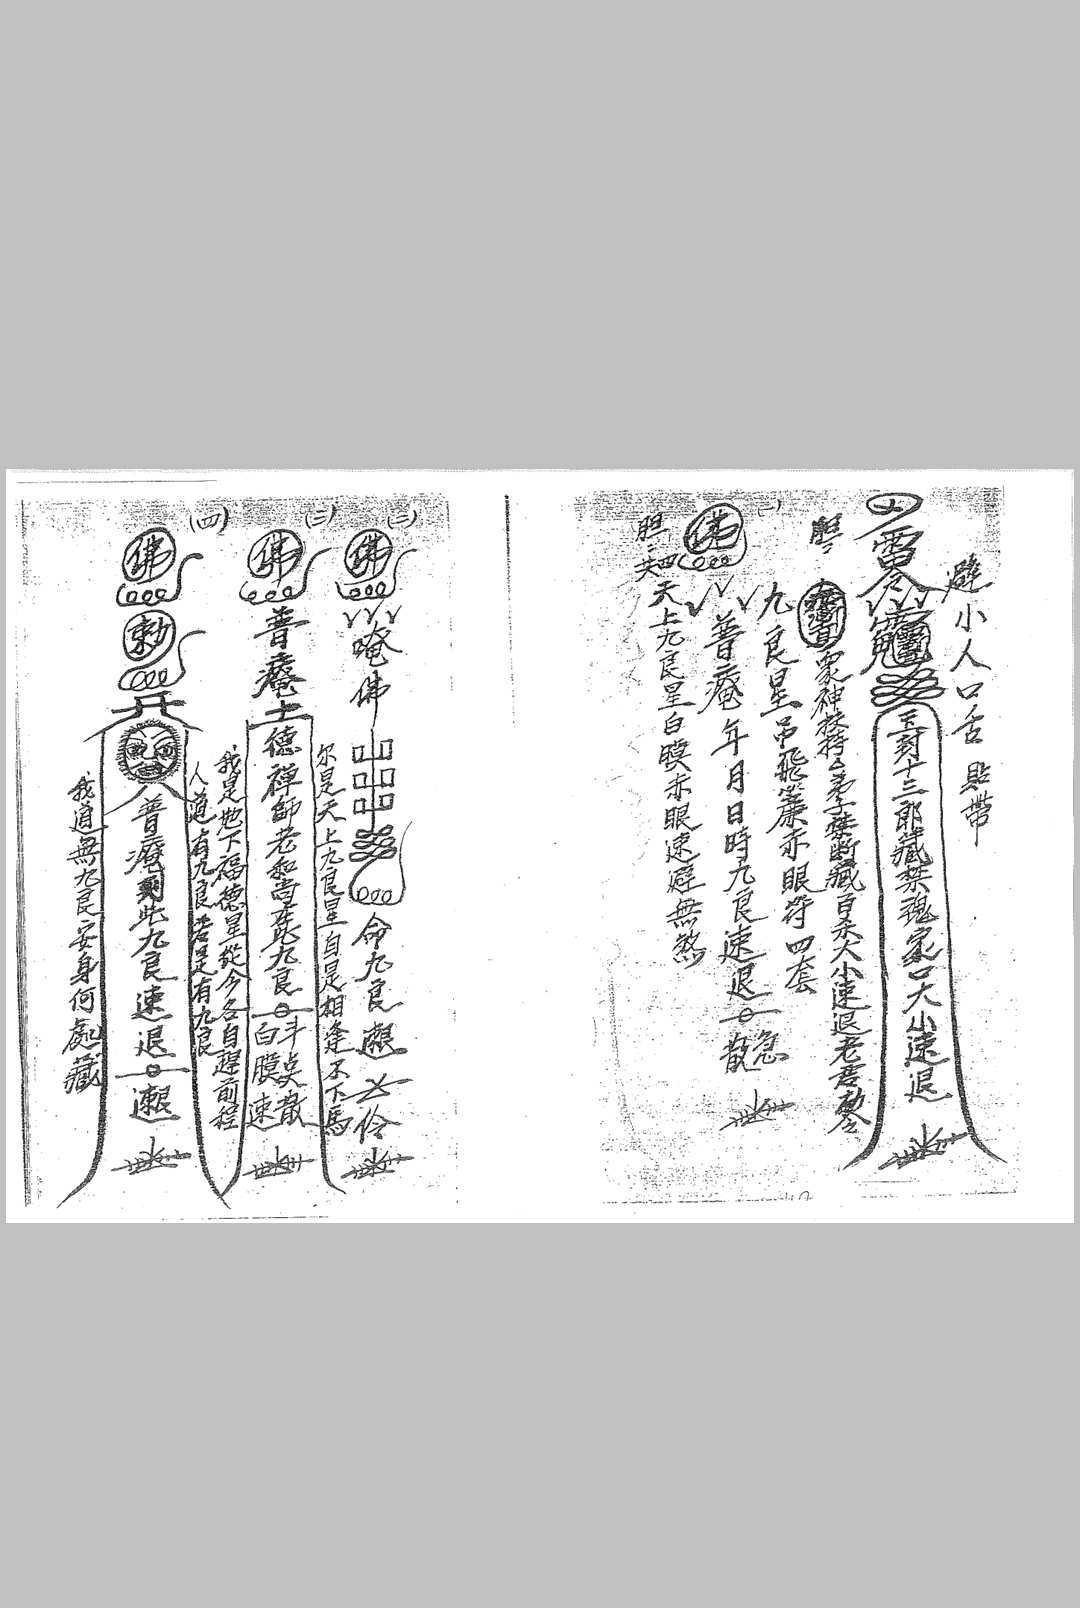 避小人口舌 貼帶
雷令
玉封十三郎藏禁魂家口大小速退
胆
眾神扶持弟子禁断藏百杀大小速退老君勅令
九良星吊飛簾赤眼符四套
(一)
佛
普庵年月日時九良速退 散 急
胆 共四
天上九良星白膜赤眼速避無煞
(二)
佛
唵佛
命九良
尔是天上九良星自是相逢不下馬
(三)
佛
普庵
德禅師老和尚在此九良
白膜速
散
我是地下福德星從今各自趕前程
(四)
佛
勅
普庵到此九良速退
人道有九良若是有九良
我道無九良安身何處藏